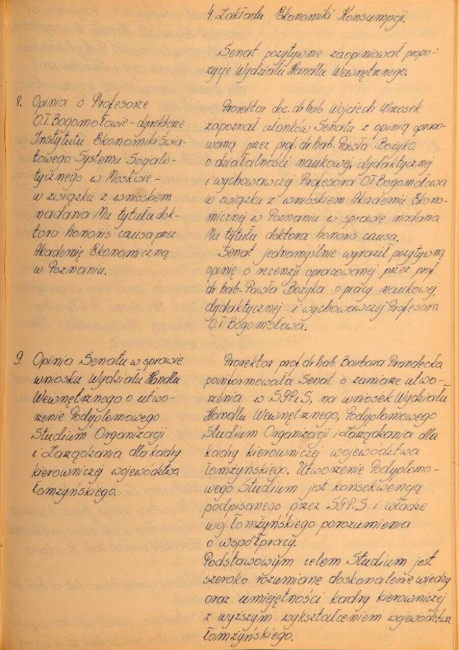 4. Zakładu Ekonomiki Konsumpcji.
Senat pozytywnie zaopiniował propo-
zycje Wydziału Handlu Wewnętrznego.
8. Opinia o Profesorze
O.T. Bogomołowie - dyrektorze
Instytutu Ekonomiki Świa-
towego Systemu Socjalis-
tycznego w Moskwie -
w związku z wnioskiem
nadania Mu tytułu dok-
tora honoris causa przez
Akademię Ekonomiczną
w Poznaniu.
Prorektor doc. dr hab. Wojciech Wrzosek
zapoznał członków Senatu z opinią opraco-
waną przez prof. dr hab. Pawła Bożyka
o działalności naukowej, dydaktycznej
i wychowawczej Profesora O.T. Bogomołowa
w związku z wnioskiem Akademii Ekono-
micznej w Poznaniu w sprawie nadania
Mu tytułu doktora honoris causa.
Senat jednomyślnie wyraził pozytywną
opinię o recenzji opracowanej przez prof.
dr hab. Pawła Bożyka o pracy naukowej,
dydaktycznej i wychowawczej Profesora
O.T. Bogomołowa.
9. Opinia Senatu w sprawie
wniosku Wydziału Handlu
Wewnętrznego o utwo-
rzenie Podyplomowego
Studium Organizacji
i Zarządzania dla kadry
kierowniczej województwa
łomżyńskiego.
Prorektor prof. dr hab. Barbara Prandecka
poinformowała Senat o zamiarze utwo-
rzenia w SGPiS, na wniosek Wydziału
Handlu Wewnętrznego, Podyplomowego
Studium Organizacji i Zarządzania dla
kadry kierowniczej województwa
łomżyńskiego. Utworzenie Podyplomo-
wego Studium jest konsekwencją
podpisanego przez SGPiS i władze
woj. łomżyńskiego porozumienia
o współpracy.
Podstawowym celem Studium jest
szeroko rozumiane doskonalenie wiedzy
oraz umiejętności kadry kierowniczej
z wyższym wykształceniem województwa
łomżyńskiego.